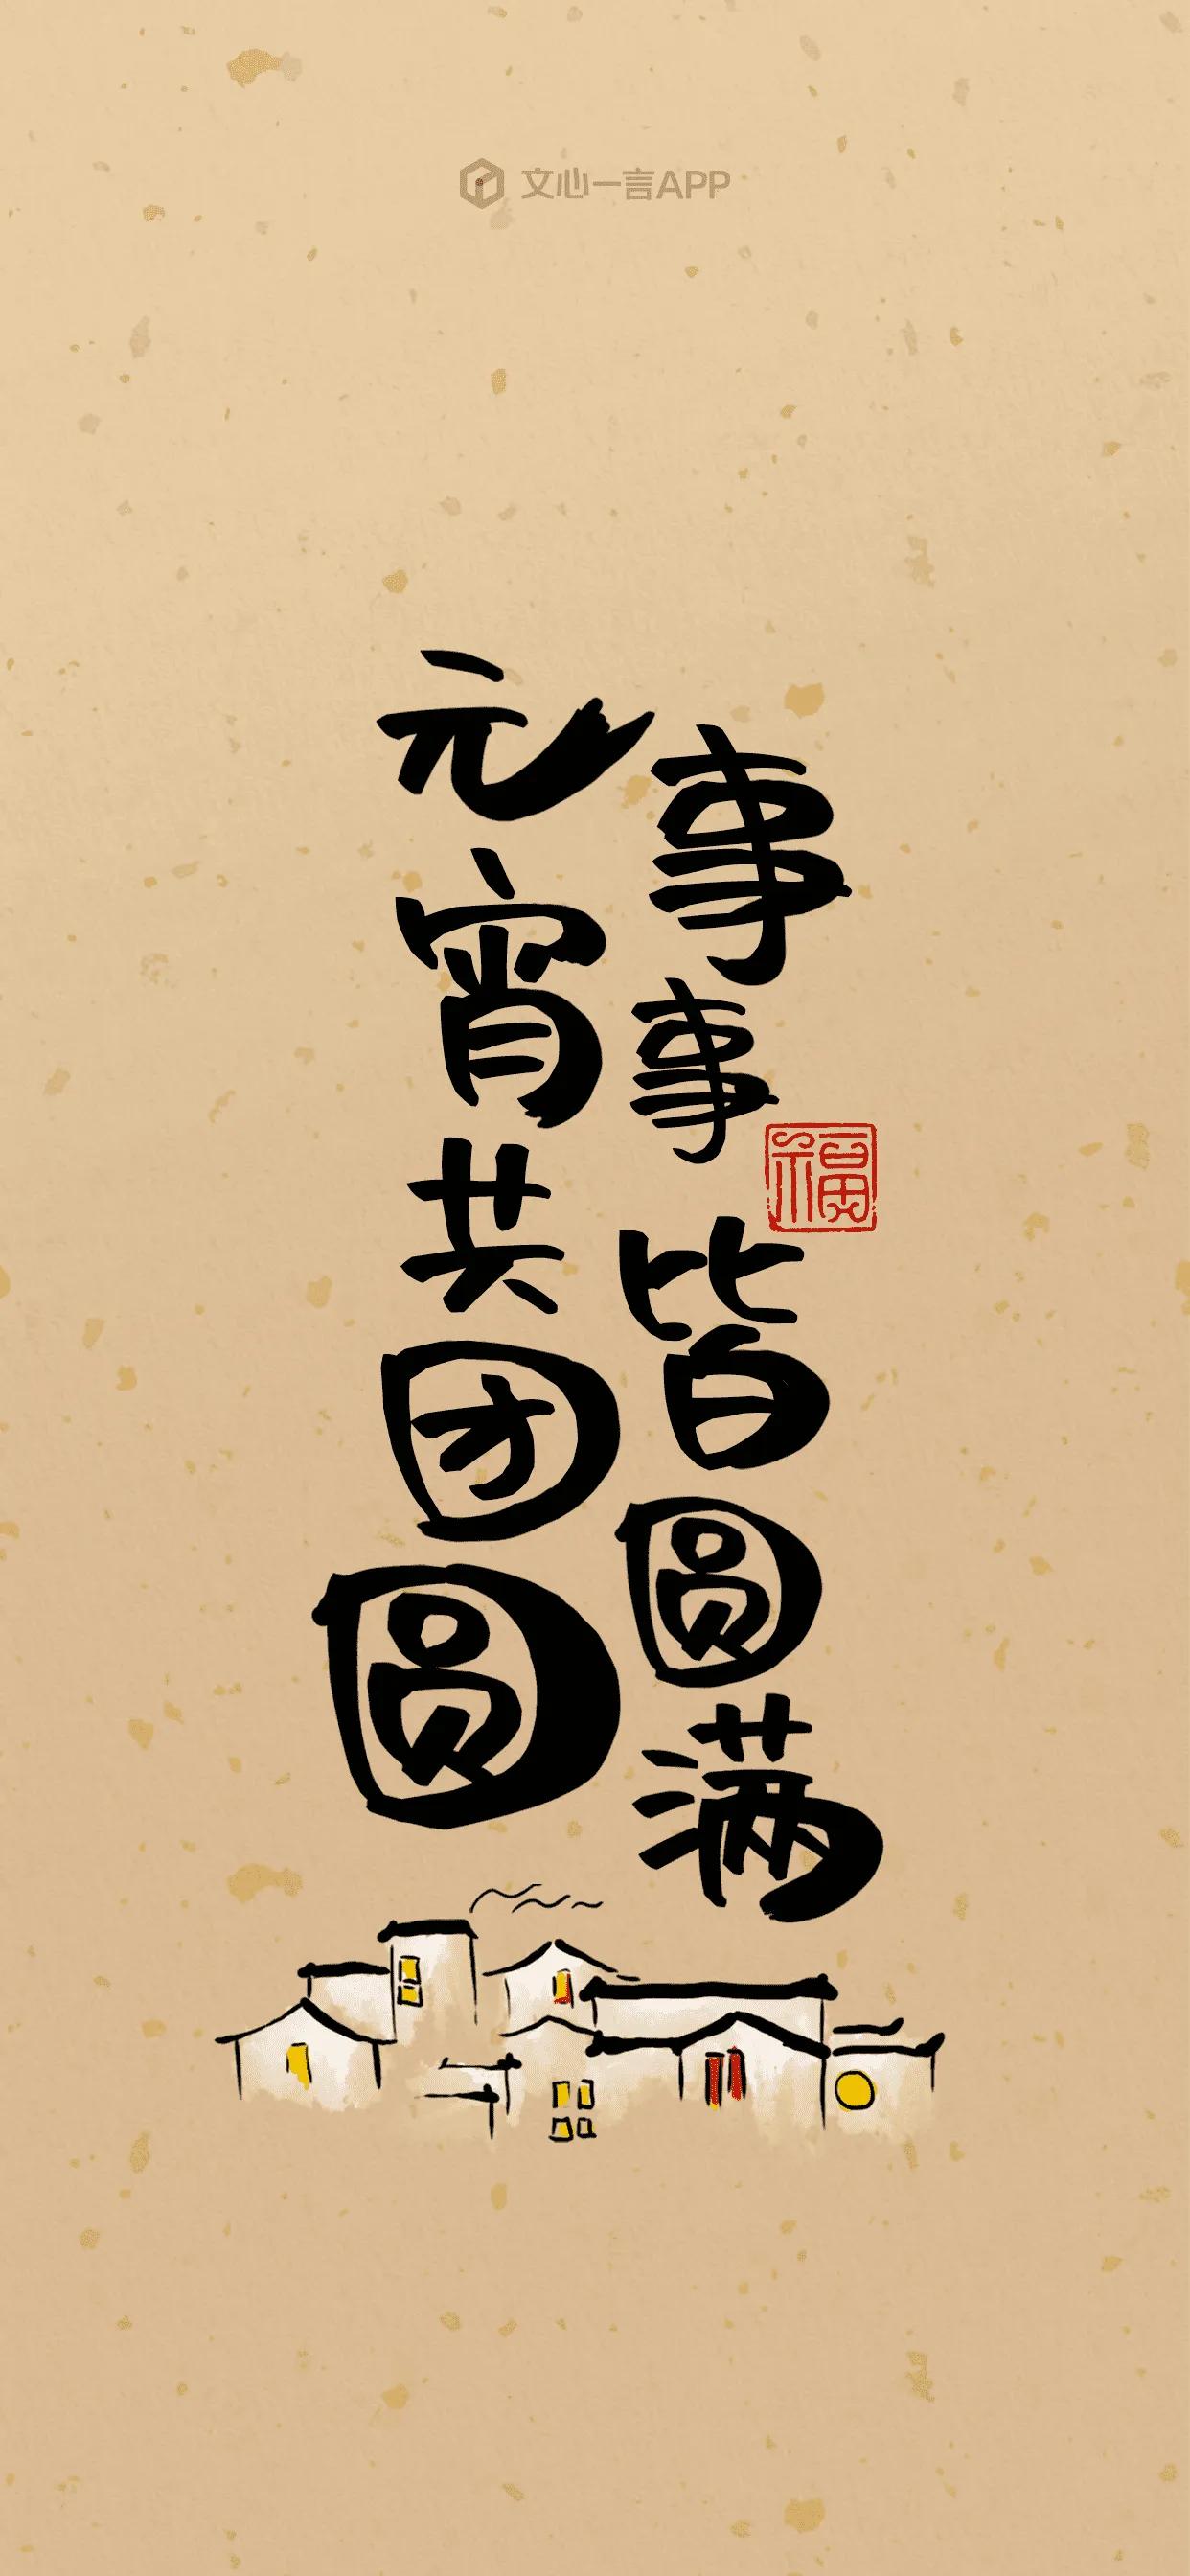 文心一言APP
元宵共团圆
事事皆圆满
福